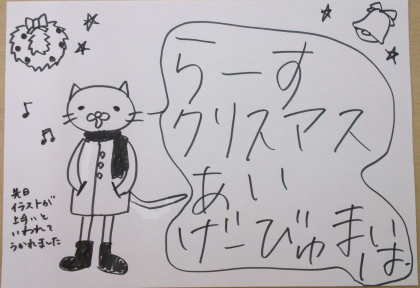 らーす
クリスマス
あい
げーびゅまい
は
先日
イラストが
上手いと
いわれて
うかれました